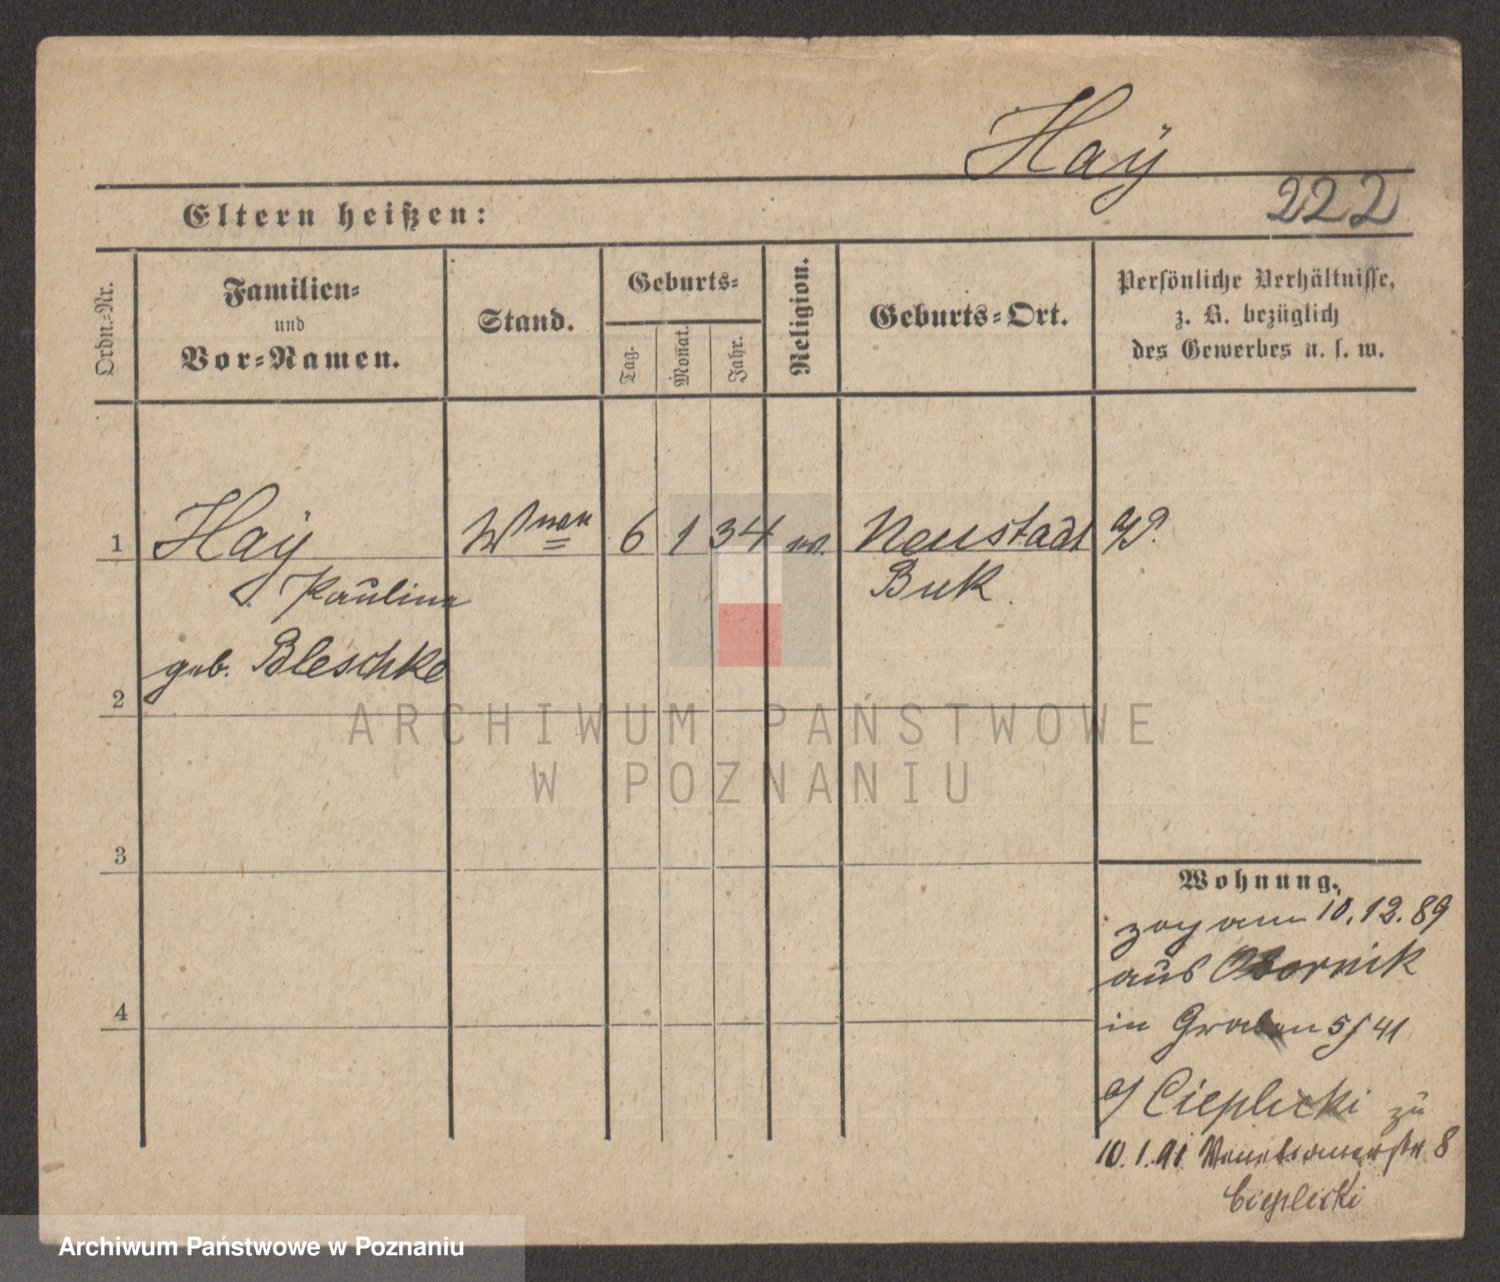 Haÿ
222
Eltern heißen:
Ordn.-Nr.
Familien-
und
Vor-Namen.
Stand.
Geburts-
Tag.
Monat.
Jahr.
Religion.
Geburts-Ort.
Persönliche Verhältnisse,
z. B. bezüglich
des Gewerbes u. s. w.
1
Haÿ
Wwe
6
1
34
Neustadt
Pauline
Buk
geb. Bleschke
2
ARCHIWUM PAŃSTWOWE
W POZNANIU
3
Wohnung.
zog am 10.12.89
aus Obornik
4
in Graben 5/41
Cieplicki zu
10.1.91 8
Cieplicki
Archiwum Państwowe w Poznaniu